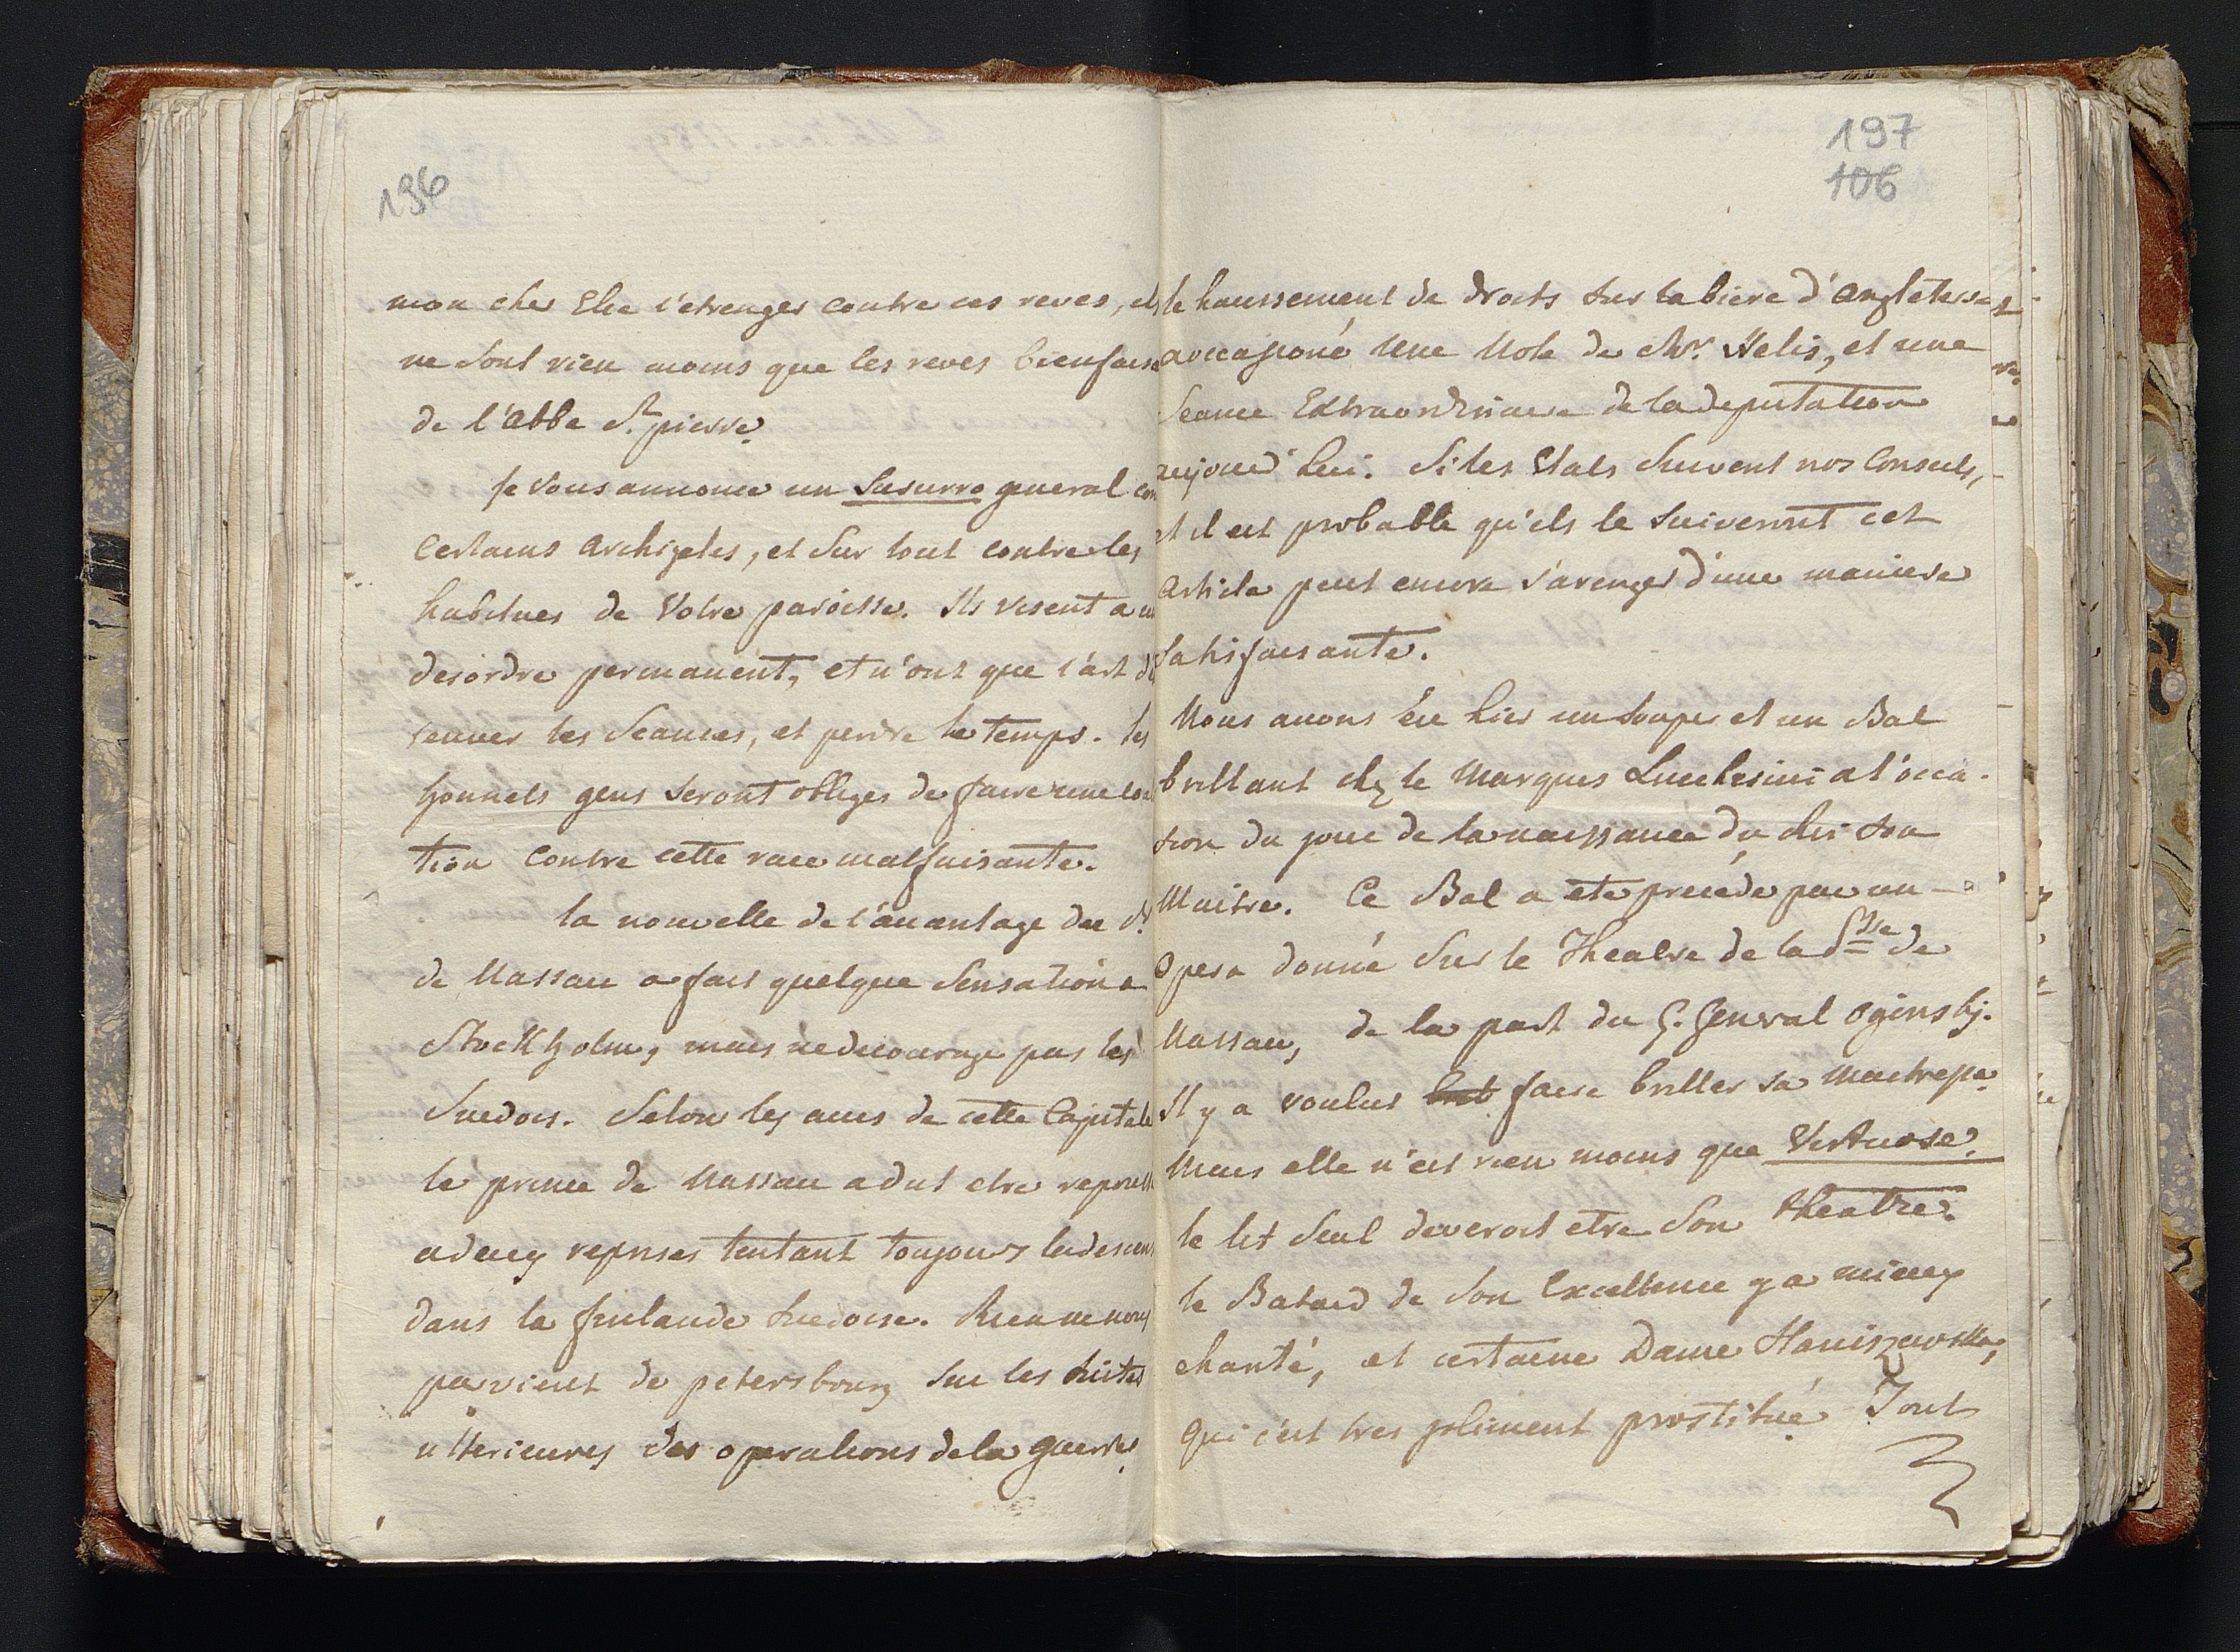 196
mon cher Elie s'etrenger contre ces reves, ils
ne sont rien moins que les reves bienfais
de l'Abbe St. pierre.
Je vous annonce un Susurro general con
certains Archigetes, et sur tout contre les
habitues de Votre paroisse. Ils visent a un
desordre permanent, et n'ont que l'art de
trainer les Seances, et perdre le temps. les
honnets gens seront obliges de faire une
tion contre cette race malfaisante.
la nouvelle de l'avantage du P.
de Nassau a fait quelque Sensation a
Stockholm, mais ne decourage pas les
Suedois. Selon les avis de cette Capitale
le prince de Nassau a dut etre repouss
a deux reprises tentant toujours la descen
dans la finlande Suedoise. Rien ne nous
parvient de petersbourg sur les suites
ulterieures des operations de la guerre.
197
106
le haussement de droits sur la biere d'Angleterre
a occasioné une Note de Mr. Helis, et une
Seance Extraordinaire de la deputation
aujourd'hui. Si les Etats suivent nos Conseils,
et il est probable qu'ils le suiveront cet
Article peut encore s'arenger d'une maniere
satisfaisante.
Nous avons éu hier un souper et un Bal
brillant chez le Marquis Lucchesini a l'occa-
sion du jour de la naissance du Roi son
Maitre. Ce Bal a ete precede par un
Opera donné sur le Theatre de la Psse de
Nassau, de la part du G. General Oginsky.
Il y a voulus faire briller sa Maitresse.
Mais elle n'est rien moins que Virtuose.
le lit seul deveroit etre son theatre.
le Batard de son Excellence y a mieux
chanté, et certaine Dame
qui s'est tres joliment prostitué. Tout